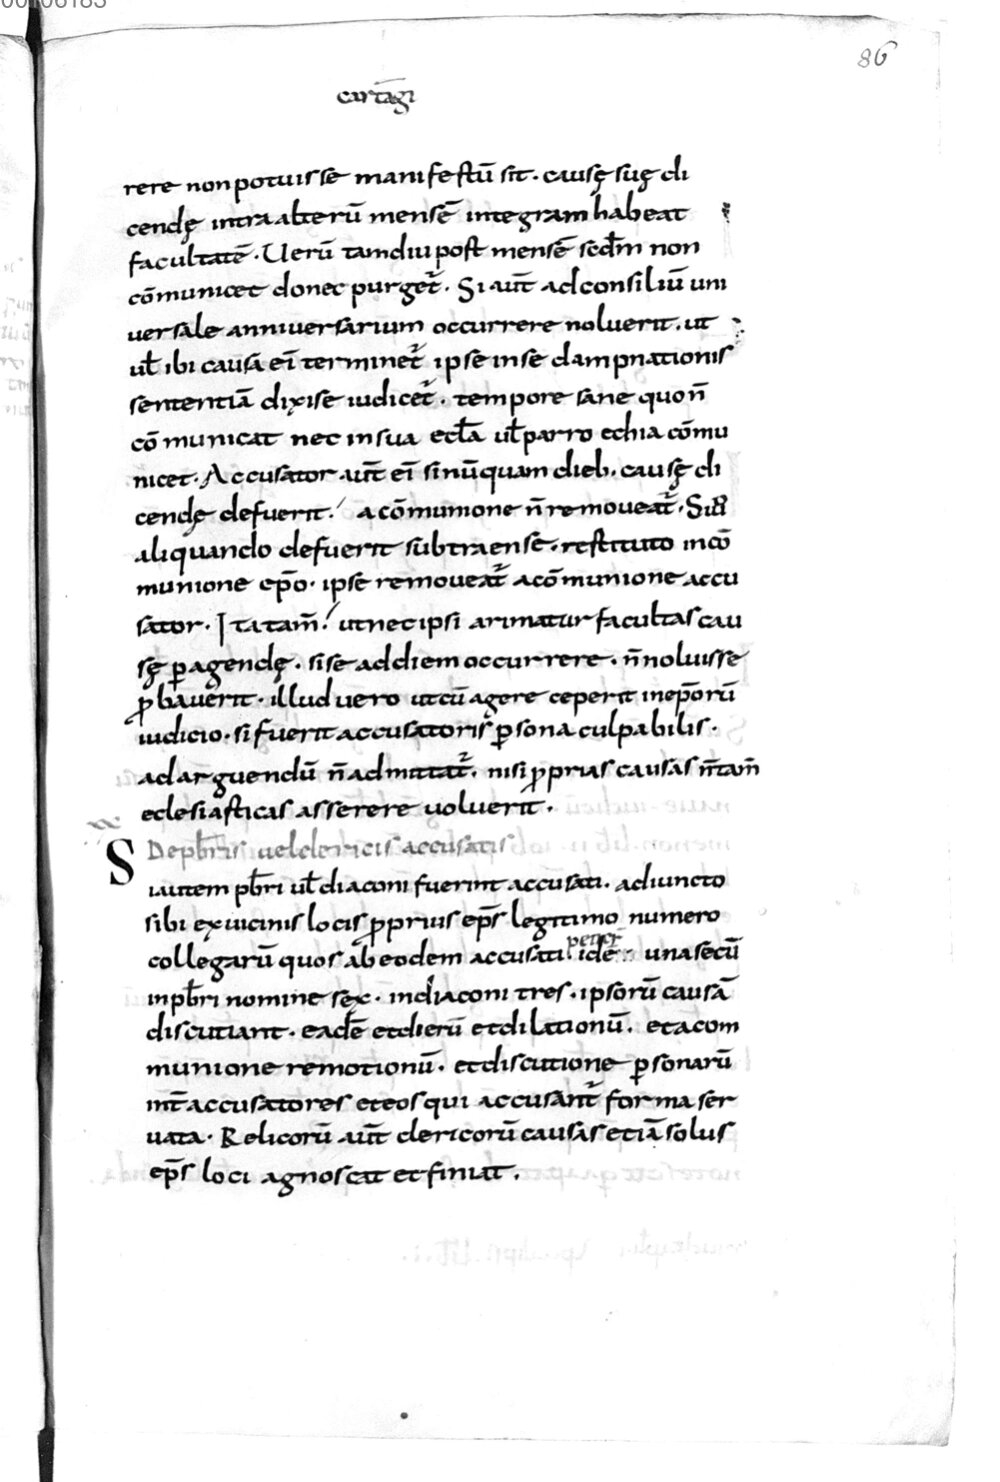 86
cartāgi
rere non potuisse manifestū sit. causę suę di
cendę intra alterū mensē integram habeat
facultatē. Uerū tamdiu post mensē secđm non
cōmunicet donec purget᷑. Si aut̄ ad consiliū uni
uersale anniuersarium occurrere noluerit. ut
ut̄ ibi causa ei᷑ terminet᷑ ipse in se dampnationis
sententiā dixise iudicet᷑. tempore sane quo n̄
cōmunicat nec in sua eccła ut̄ parrochia cōmu
nicet. Accusator aut̄ ei᷑ si nūquam dieb. causę di
cendę defuerit. a cōmunione n̄ remoueat᷑. Si ū
aliquando defuerit subtraense. restituto in cō
munione ep̄o. ipse remoueat᷑ a cōmunione accu
sator. Ita tam̄. ut nec ipsi arimatur facultas cau
sę ꝑagendę. si se ad diem occurrere. n̄ noluisse
ꝓbauerit. illud uero ut cū agere ceperit in ep̄orū
iudicio. si fuerit accusatoris ꝑsona culpabilis.
ad arguendū n̄ admittat᷑. nisi ꝓprias causas n̄ tam̄
eclesiasticas asserere uoluerit.
De p̄bris uel clericis accusatis
Si autem p̄bri ut̄ diaconi fuerint accusati. adiuncto
sibi ex uicinis locis ꝓprius ep̄s legitimo numero
collegarū quos ab eodem accusati idē petier̄ una secū
in p̄bri nomine sex. in diaconi tres. ipsorū causā
discutiant. eadē et dierū et dilationū. et a com
munione remotionū. et discutione ꝑsonarū
int̄ accusatores et eos qui accusant᷑ forma ser
uata. Relicorū aut̄ clericorū causas etiā solus
ep̄s loci agnoscat et finiat.